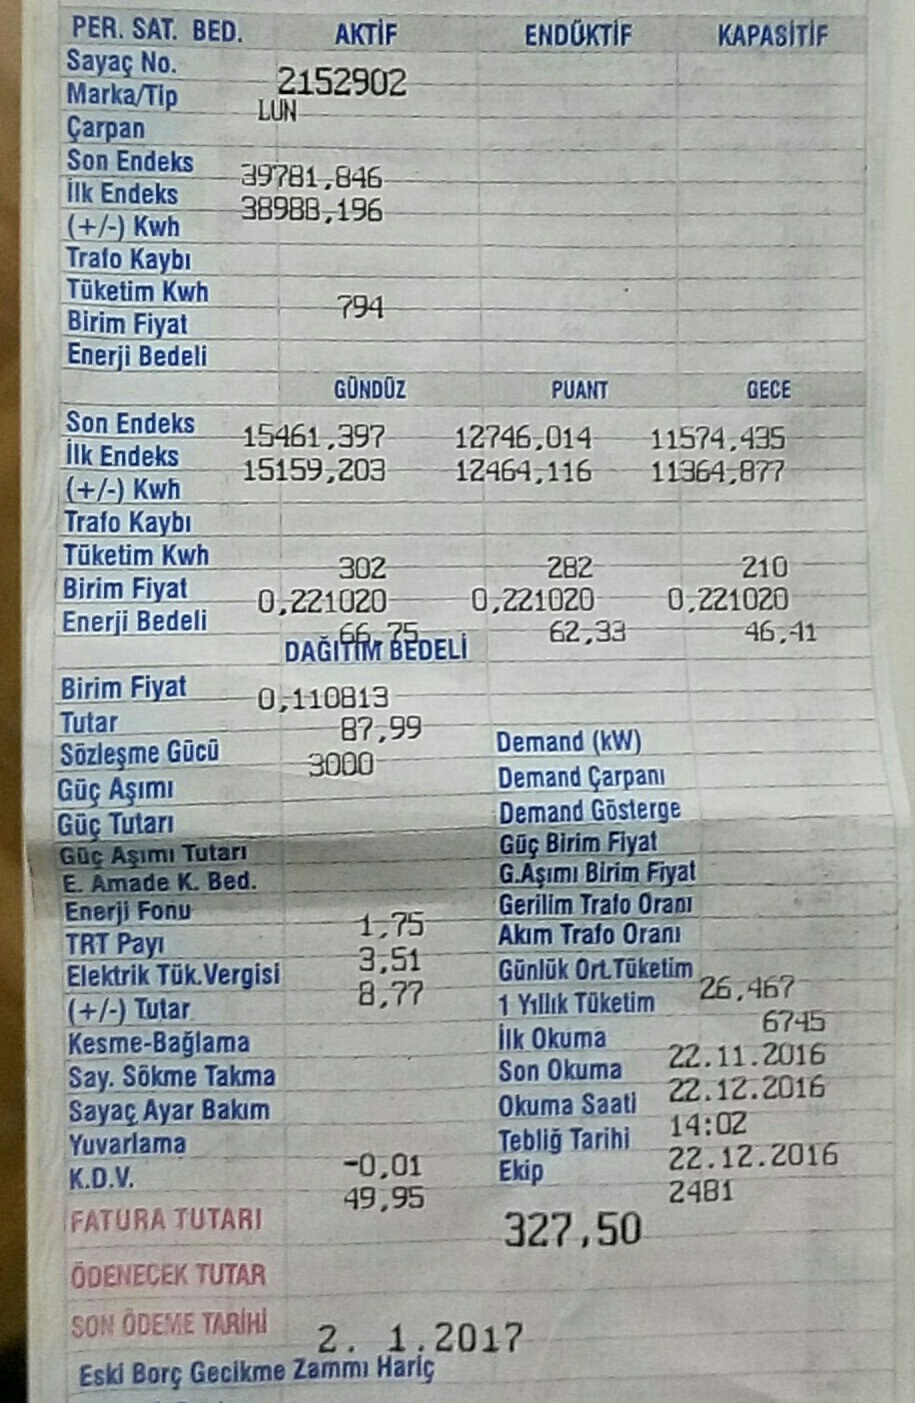 PER. SAT. BED. AKTİF ENDÜKTİF KAPASİTİF
Sayaç No. 2152902
Marka/Tip LUN
Çarpan
Son Endeks 39781,846
İlk Endeks 38988,196
(+/-) Kwh
Trafo Kaybı
Tüketim Kwh 794
Birim Fiyat
Enerji Bedeli
GÜNDÜZ PUANT GECE
Son Endeks 15461,397 12746,014 11574,435
İlk Endeks 15159,203 12464,116 11364,877
(+/-) Kwh
Trafo Kaybı
Tüketim Kwh 302 282 210
Birim Fiyat 0,221020 0,221020 0,221020
Enerji Bedeli 66,75 62,33 46,41
DAĞITIM BEDELİ
Birim Fiyat 0,110813
Tutar 87,99
Sözleşme Gücü 3000
Güç Aşımı
Güç Tutarı
Güç Aşımı Tutarı
E. Amade K. Bed.
Enerji Fonu 1,75
TRT Payı 3,51
Elektrik Tük.Vergisi 8,77
(+/-) Tutar
Kesme-Bağlama
Say. Sökme Takma
Sayaç Ayar Bakım
Yuvarlama -0,01
K.D.V. 49,95
Demand (kW)
Demand Çarpanı
Demand Gösterge
Güç Birim Fiyat
G.Aşımı Birim Fiyat
Gerilim Trafo Oranı
Akım Trafo Oranı
Günlük Ort.Tüketim 26,467
1 Yıllık Tüketim 6745
İlk Okuma 22.11.2016
Son Okuma 22.12.2016
Okuma Saati 14:02
Tebliğ Tarihi 22.12.2016
Ekip 2481
FATURA TUTARI 327,50
ÖDENECEK TUTAR
SON ÖDEME TARİHİ 2. 1.2017
Eski Borç Gecikme Zammı Hariç